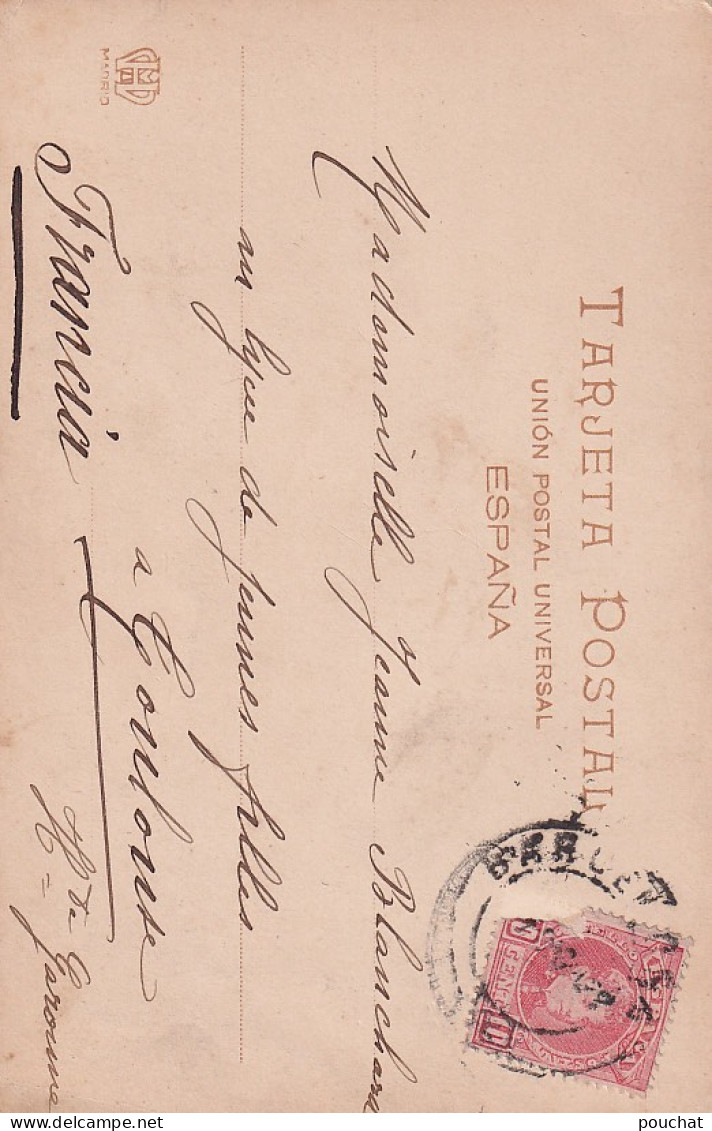 TARJETA POSTAL
UNIÓN POSTAL UNIVERSAL
ESPAÑA
Mademoiselle Jeanne Blanchard
au lycée de jeunes filles
a Toulouse
Hte Garonne
Francia
MADRID
BARCEL
10
pouchat